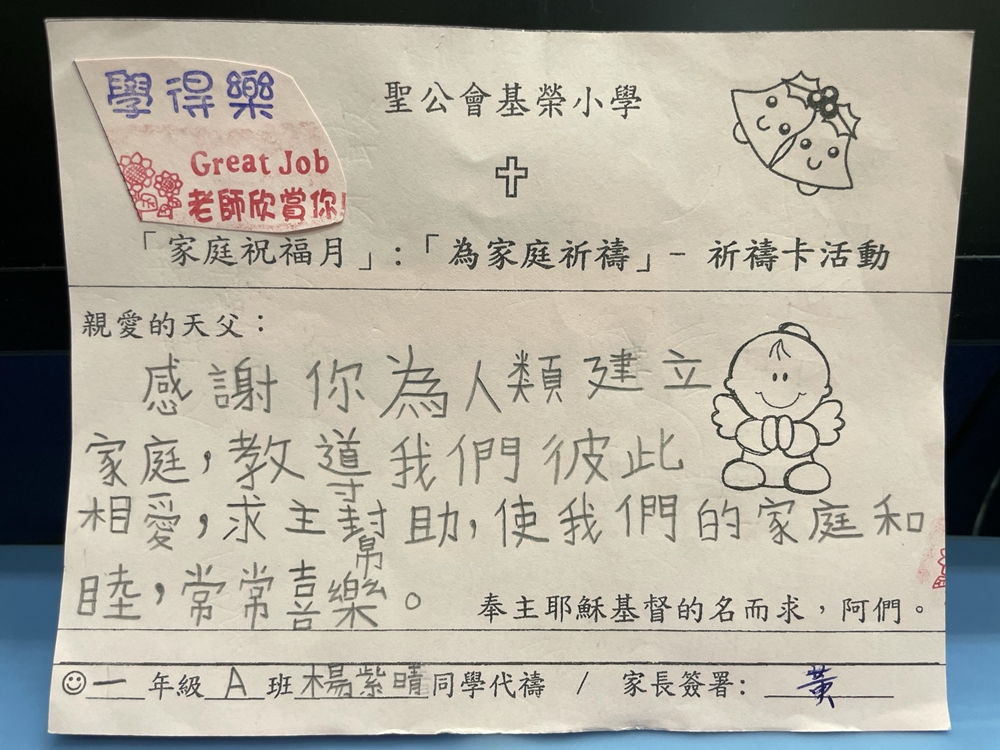 學得樂
Great Job
老師欣賞你!
聖公會基榮小學
「家庭祝福月」:「為家庭祈禱」- 祈禱卡活動
親愛的天父：
感謝你為人類建立
家庭，教導我們彼此
相愛，求主幫助，使我們的家庭和
睦，常常喜樂。
奉主耶穌基督的名而求，阿們。
一 年級 A 班 楊紫晴 同學代禱 / 家長簽署: 黃